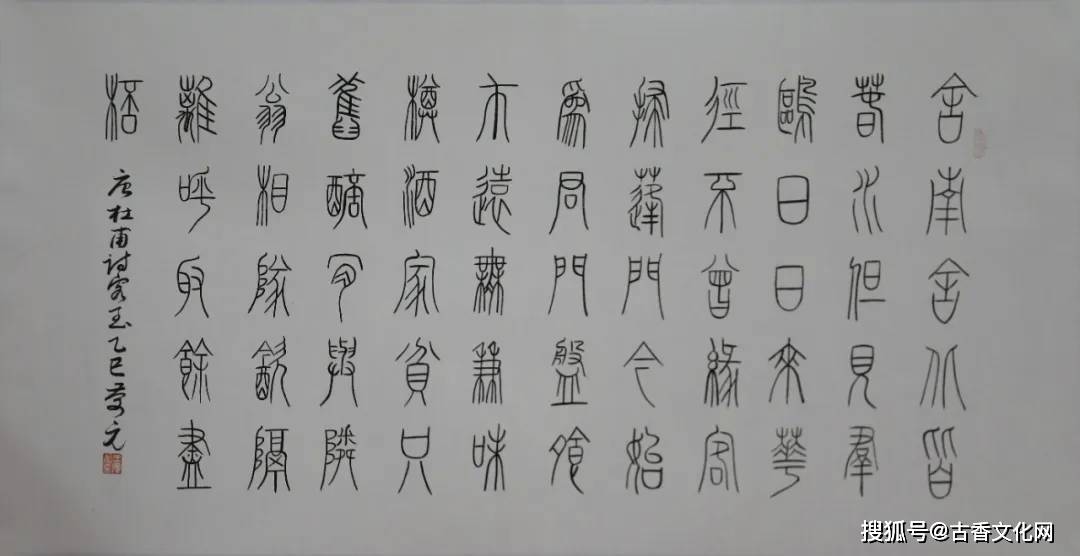 舍南舍北皆
春水但見羣
鷗日日來華
徑不曾緣客
掃蓬門今始
爲君門盤飧
市遠無兼味
樽酒家貧只
舊醅肯與隣
翁相隊飲隔
籬呼取餘盡
桮
唐杜甫詩客至乙巳元
搜狐号@古香文化网